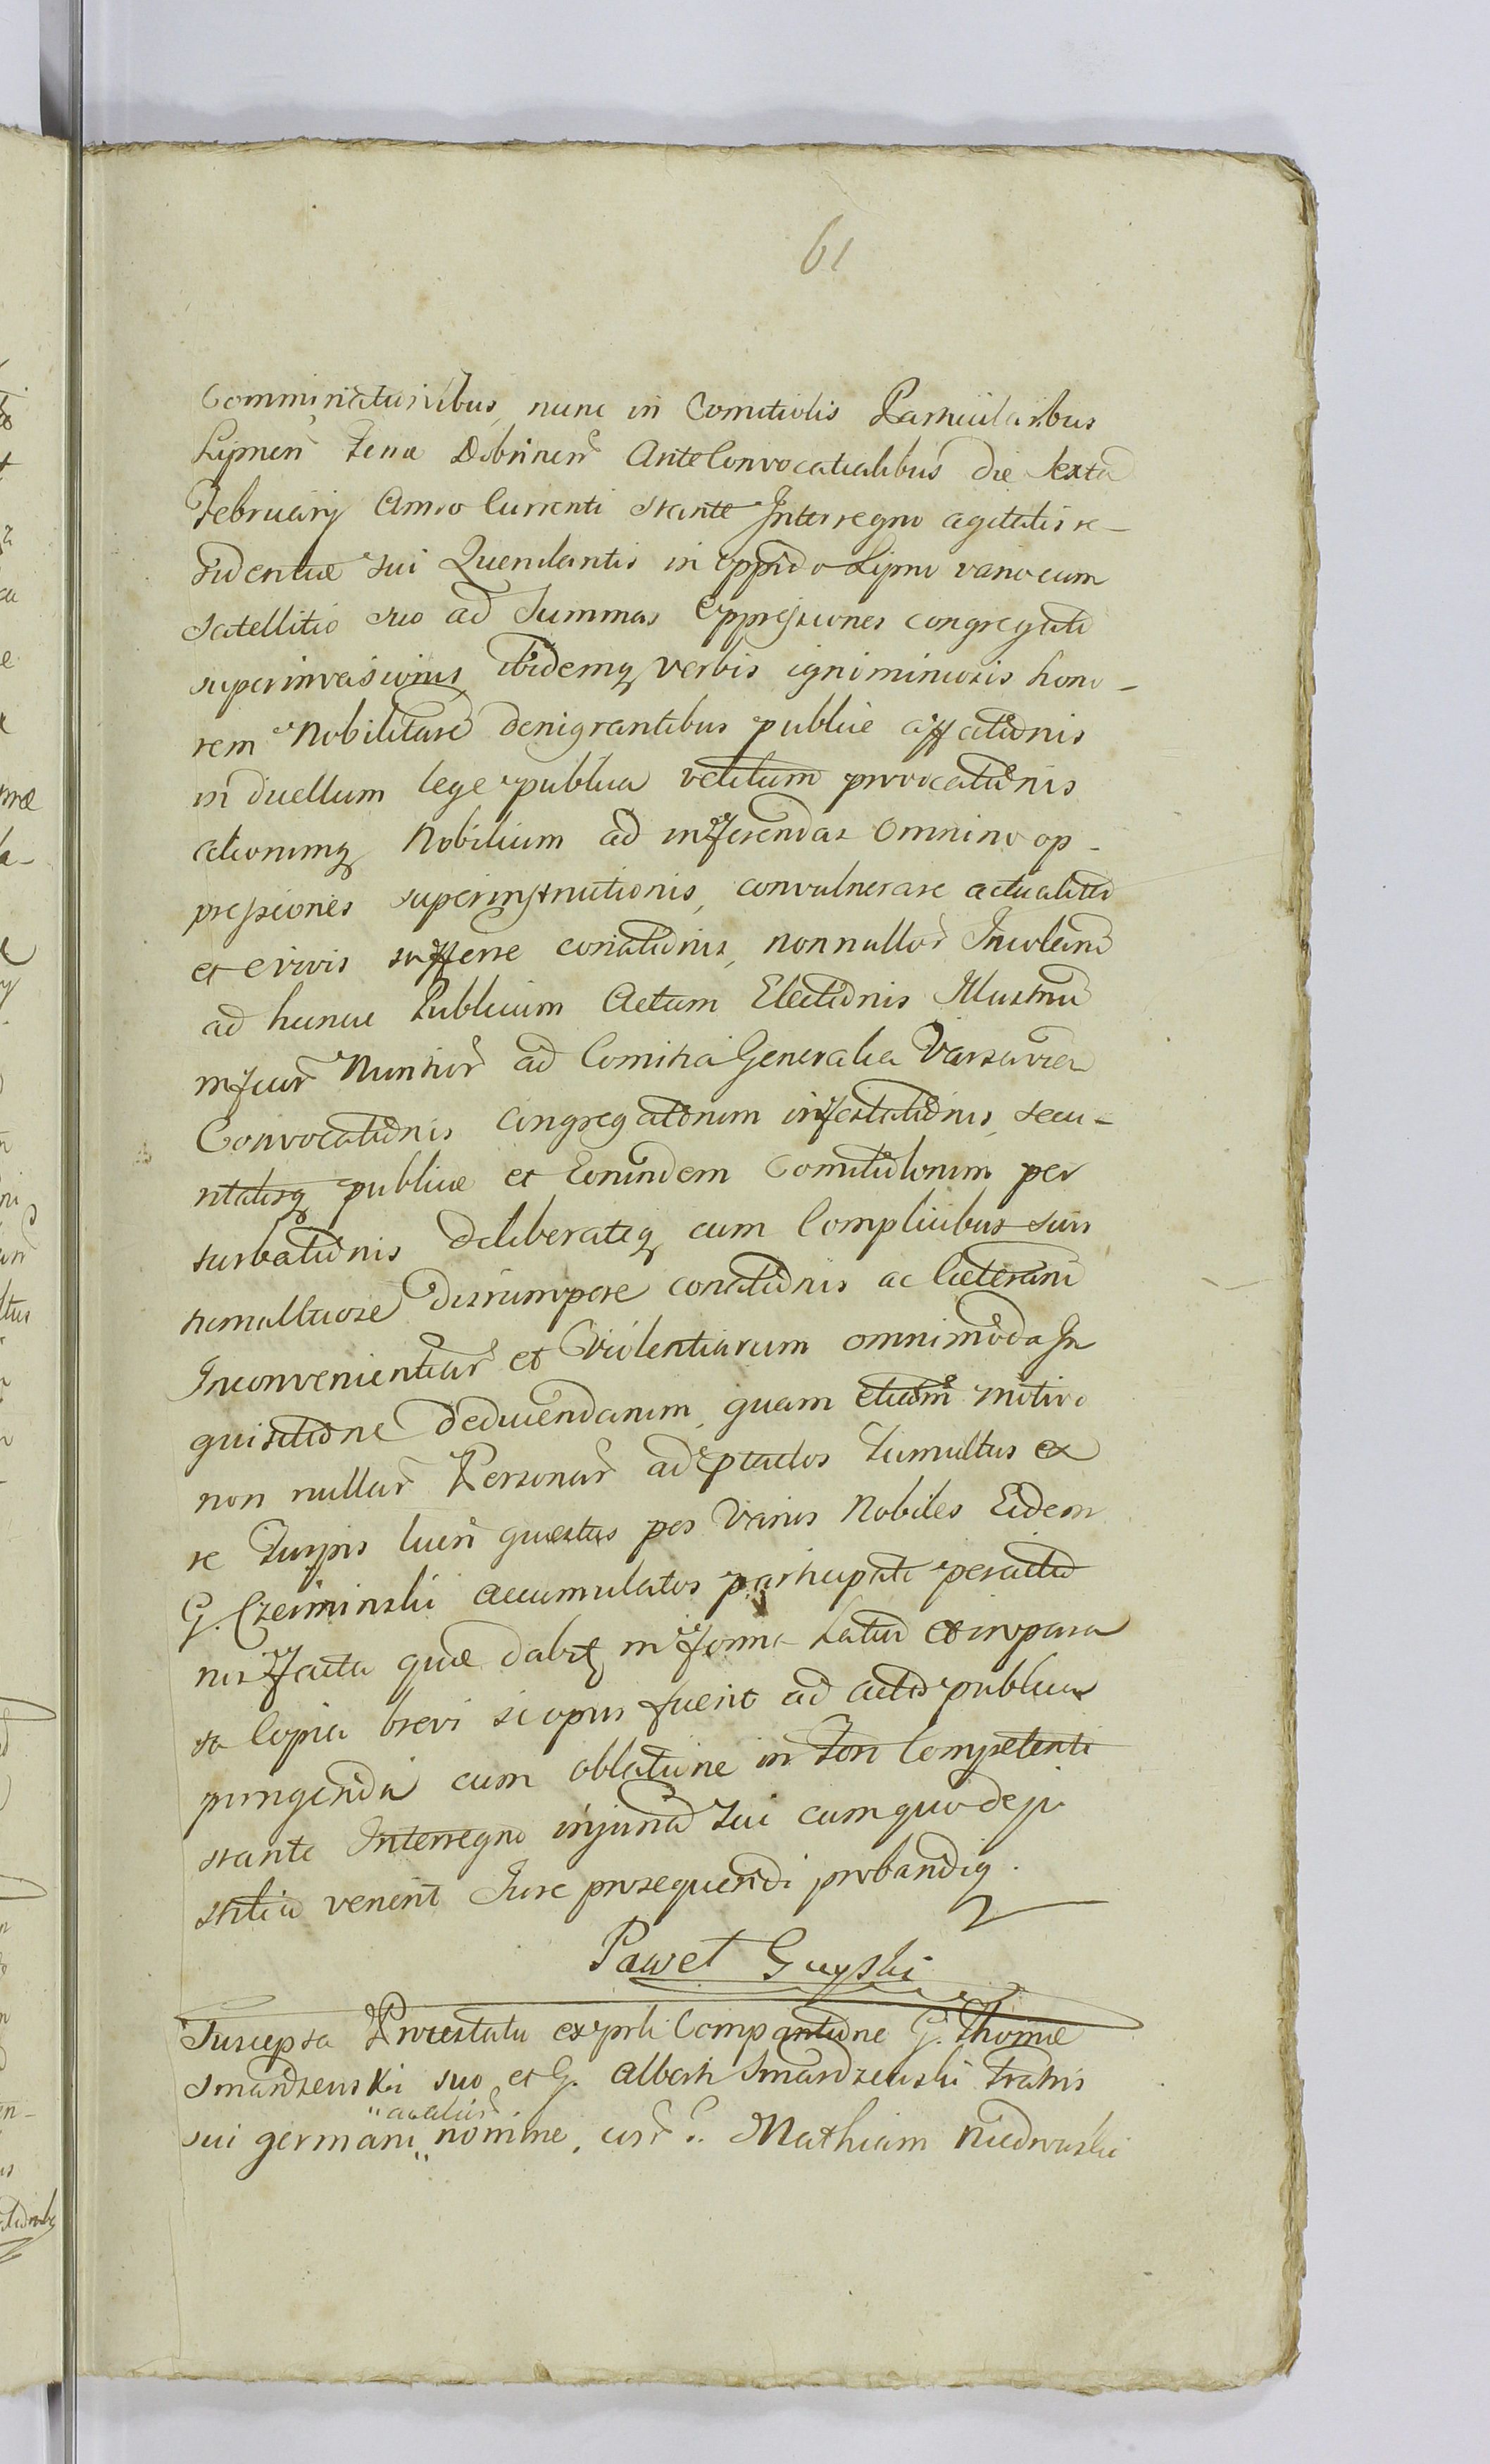 61
Comminaturibus, nunc in Comitiolis Particularibus
Lipnen Terræ Dobrinen AnteConvocatialibus die sexta
Februarij Anno Currenti stante Interregno agitatis re-
sidentiæ sui Querulantis in oppido Lipno vario cum
satellitio suo ad summas oppressiones congregati
superinvasionis, ibidemq verbis igniminiosis hono-
rem Nobilitare denigrantibus publice affatidnis
in duellum lege publica vetitum provocatidnis
aliorumq Nobilium ad inferendas omnino op-
pressiones superinstrutionis, convulnerare actualiter
et e vivis sufferre conatidnis, nonnullor Incolarum
ad hunc Publicum Actum Electidnis Illustrium
mfcor Nuntior ad Comitia Generalia Varsavien
Convocatidnis congregatorum infestatidnis, secu-
ritatisq publicæ et Eorundem Comitiolorum per
turbatidnis deliberateq cum Complicibus suis
tumultuose disrumpere conatidnis ac Cæterarum
Inconvenientiar et Violentiarum omnimoda In
quisitidne deducendarum, quam etiam motivo
non nullar Personar ad ptactos Tumultus ex
re Turpis lucri quæstus per Varios Nobiles Eidem
G. Czeiminski accumulatos participati peractio
nis facta quæ dabitq in forma Latius ex inopara
ta Copia brevi si opus fuerit ad acta publica
pungenda cum oblatione in Fori Competenti
stante Interregno injuria sui cum quo de ju
stitia venerit Jure prosequendi probandiq.
Paweł Guyski
Suscepta Protestatio ex prli Comparitidne G. Thomæ
Smardzewski suo et G. Alberti Smardzewski Fratris
"
sui germani " nomine, cor Mathiam Niedwuski